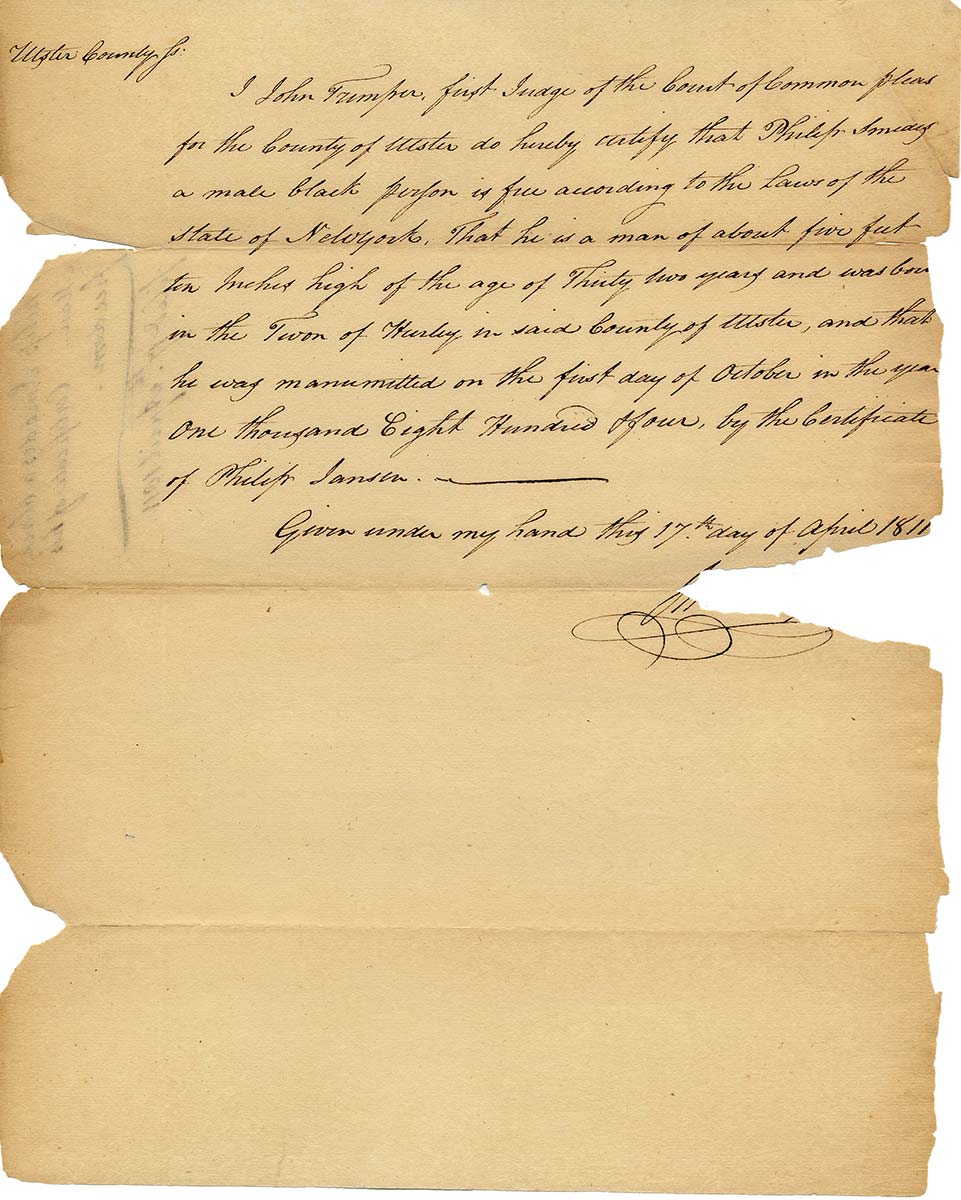 Ulster County Ss:
I John Trumper, first Judge of the Court of Common pleas
for the County of Ulster do hereby certify that Philip Smedes
a male black person is free according to the Laws of the
State of NewYork, That he is a man of about five feet
ten Inches high of the age of Thirty two years and was bor
in the Twon of Hurley in said County of Ulster, and that
he was manumitted on the first day of October in the year
One thousand Eight Hundred & four, by the Certificate
of Philip Jansen.
Given under my hand this 17th day of April 1811